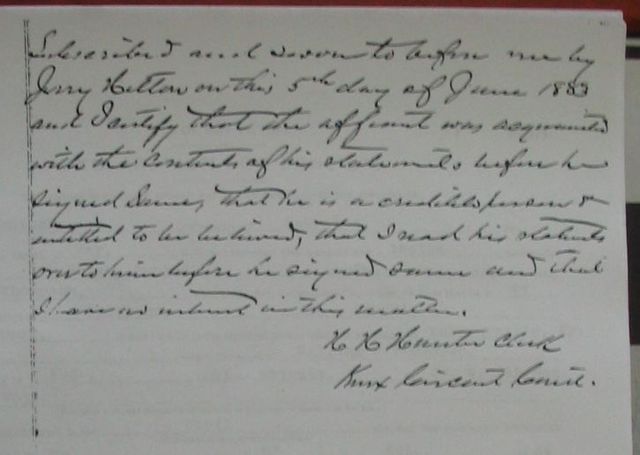 Subscribed and sworn to before me by
Jerry Helton on this 5th day of June 1883
and I certify that the affiant was acquainted
with the contents of his statements before he
signed same, that he is a credible person &
entitled to be believed, that I read his statements
over to him before he signed same and that
I have no interest in this matter.
H H Hunter Clerk
Knox Circuit Court.